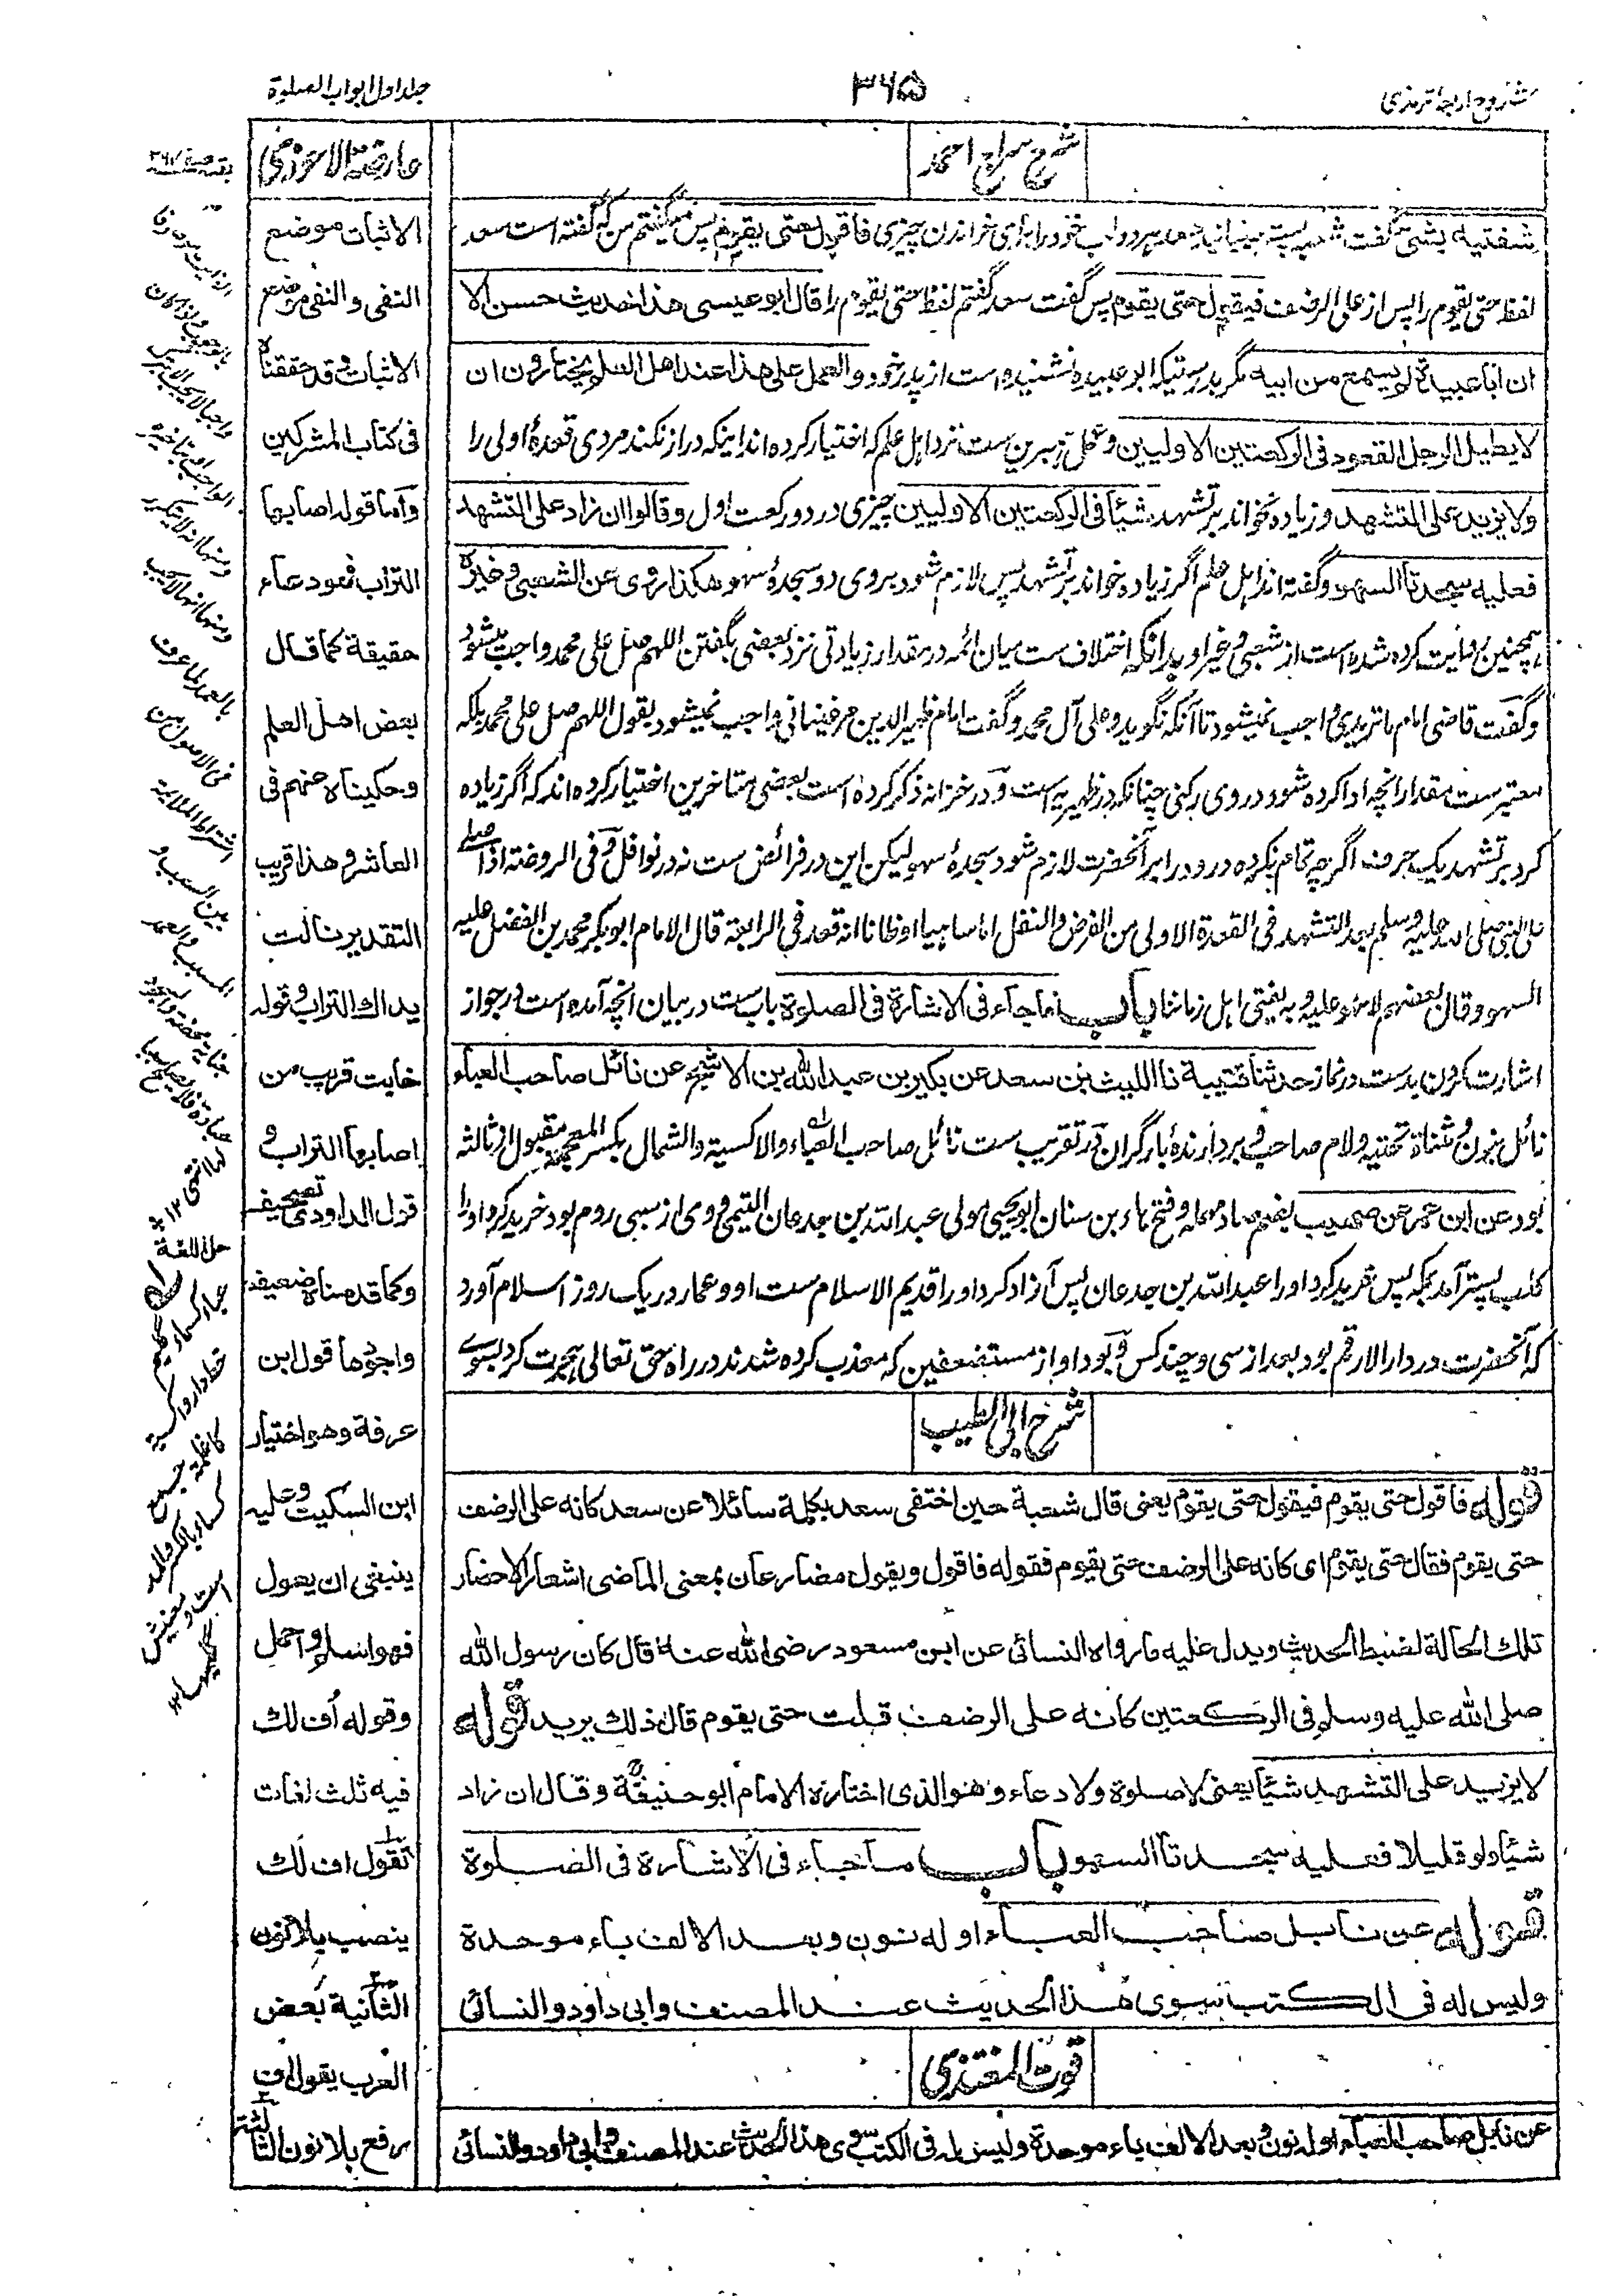 شروح اربعہ ترمذی
۳۶۵
جلد اول ابواب الصلوة
شرح سراج احمد
شفتيه بشئ گفت شعبه پستر بجنبانید سعد هر دو لب خود را برای خواندن چیزی فاقول حتی یقوم پس میگفتم من که گفته است سعد
لفظ حتی یقوم را پس از علی الرضف فیقول حتی یقوم پس گفت سعد گفتم لفظ حتی یقوم را قال ابو عیسی هذا حدیث حسن الا
ان ابا عبیدة لم یسمع من ابیه مگر بدرستیکه ابو عبیده نشنیده است از پدر خود والعمل علی هذا عند اهل العلم یختارون ان
لا یطیل الرجل القعود فی الرکعتین الاولیین وعمل برین ست نزد اہل علم کہ اختیار کرده اند اینکہ دراز نکند مردی قعدۂ اولی را
ولا یزید علی التشهد و زیاده نخواند بر تشهد شیئا فی الرکعتین الاولیین چیزی در دو رکعت اول وقالوا ان زاد علی التشهد
فعلیه سجدتا السهو و گفته اند اہل علم اگر زیاده خواند بر تشهد پس لازم شود بروی دو سجدۂ سهو هکذا روی عن الشعبی وغیره
همچنین روایت کرده شده است از شعبی و غیر او بدانکہ اختلاف ست میان ائمه در مقدار زیادتی نزد بعضی بگفتن اللهم صل علی محمد واجب میشود
وگفت قاضی امام ماتریدی واجب نمیشود تا آنکہ نگوید وعلی آل محمد وگفت امام ظهیر الدین مرغینانی واجب نمیشود بقول اللهم صل علی محمد بلکہ
معتبر ست مقدار انچه ادا کرده شود در وی رکنی چنانکہ در ظهیریه است و در خزانه ذکر کرده است بعضی متاخرین اختیار کرده اند کہ اگر زیاده
کرد بر تشهد یک حرف اگرچه تمام نکرده درود را بر آنحضرت لازم شود سجدۂ سهو لیکن این در فرائض ست نه در نوافل وفی الروضة اذا صلی
علی النبی صلی الله علیه وسلم بعد التشهد فی القعدة الاولی من الفرض والنفل اما ساهیا او ظانا انه قعد فی الرابعة قال الامام ابو بکر محمد بن الفضل علیه
السهو وقال بعضهم لا سهو علیه وبه یفتی اہل زماننا باب ما جاء فی الاشارة فی الصلوة باب ست در بیان انچه آمده است در جواز
اشارت کردن بدست در نماز حدثنا قتیبة نا اللیث بن سعد عن بکیر بن عبد الله بن الاشج عن نائل صاحب العباء
نائل بنون و مثناة تحتیه ولام صاحب بردارندۂ بار گران در تقریب ست نائل صاحب العباء والاکسیة والشمال بکسر المعجمة مقبول از ثالثه
بود عن ابن عمر عن صهیب بضم صاد مهمله وفتح هاء بن سنان ابو یحیی مولی عبد الله بن جدعان التیمی و وی از سبی روم بود خرید کرد او را
کلب پستر آمد بمکہ پس خرید کرد او را عبد الله بن جدعان پس آزاد کرد او را قدیم الاسلام ست او و عمار در یک روز اسلام آورد
کہ آنحضرت در دار الارقم بود بعد از سی و چند کس و بود او از مستضعفین کہ معذب کرده شدند در راه حق تعالی هجرت کرد بسوے
شرح ابی الطیب
قوله فاقول حتی یقوم فیقول حتی یقوم یعنی قال شعبة حین اختفی سعد بکلمة سائلا عن سعد کانه علی الرضف
حتی یقوم فقال حتی یقوم ای کانه علی الرضف حتی یقوم فقوله فاقول ویقول مضارعان بمعنی الماضی اشعار الاحضار
تلك الحالة لضبط الحدیث ویدل علیه ما رواه النسائی عن ابن مسعود رضی الله عنه قال کان رسول الله
صلی الله علیه وسلم فی الرکعتین کانه علی الرضف قلت حتی یقوم قال ذلك یرید قوله
لا یزید علی التشهد شیئا یعنی لا صلوة ولا دعاء وهو الذی اختاره الامام ابو حنیفة وقال ان زاد
شیئا ولو قلیلا فعلیه سجدتا السهو باب ما جاء فی الاشارة فی الصلوة
قوله عن نابل صاحب العباء اوله نون وبعد الالف باء موحدة
ولیس له فی الکتب سوی هذا الحدیث عند المصنف وابی داود والنسائی
قوت المغتذی
عن نابل صاحب العباء اوله نون وبعد الالف باء موحدة ولیس له فی الکتب سوی هذا الحدیث عند المصنف وابی داود والنسائی
عارضة الاحوذی
الاثبات موضع
النفی والنفی موضع
الاثبات وقد حققناه
فی کتاب المشرکین
واما قوله اصابها
التراب فهو دعاء
حقیقة کما قال
بعض اهل العلم
وحکیناه عنهم فی
العاشر وهذا قریب
التقدیر نالت
یداك التراب وقوله
غایت قریب من
اصابها التراب و
قول الداودی تصحیف
وکما قدمناه ضعیف
واجودها قول ابن
عرفة وهو اختیار
ابن السکیت وعلیه
ینبغی ان یعول
فهو اسلم واجمل
وقوله اف لك
فیه ثلث لغات
تقول اف لك
ینصب بلا نون
الثانیة بعض
العرب یقول اف
برفع بلا نون الثالثة
بقیه صفحه
حل اللغة